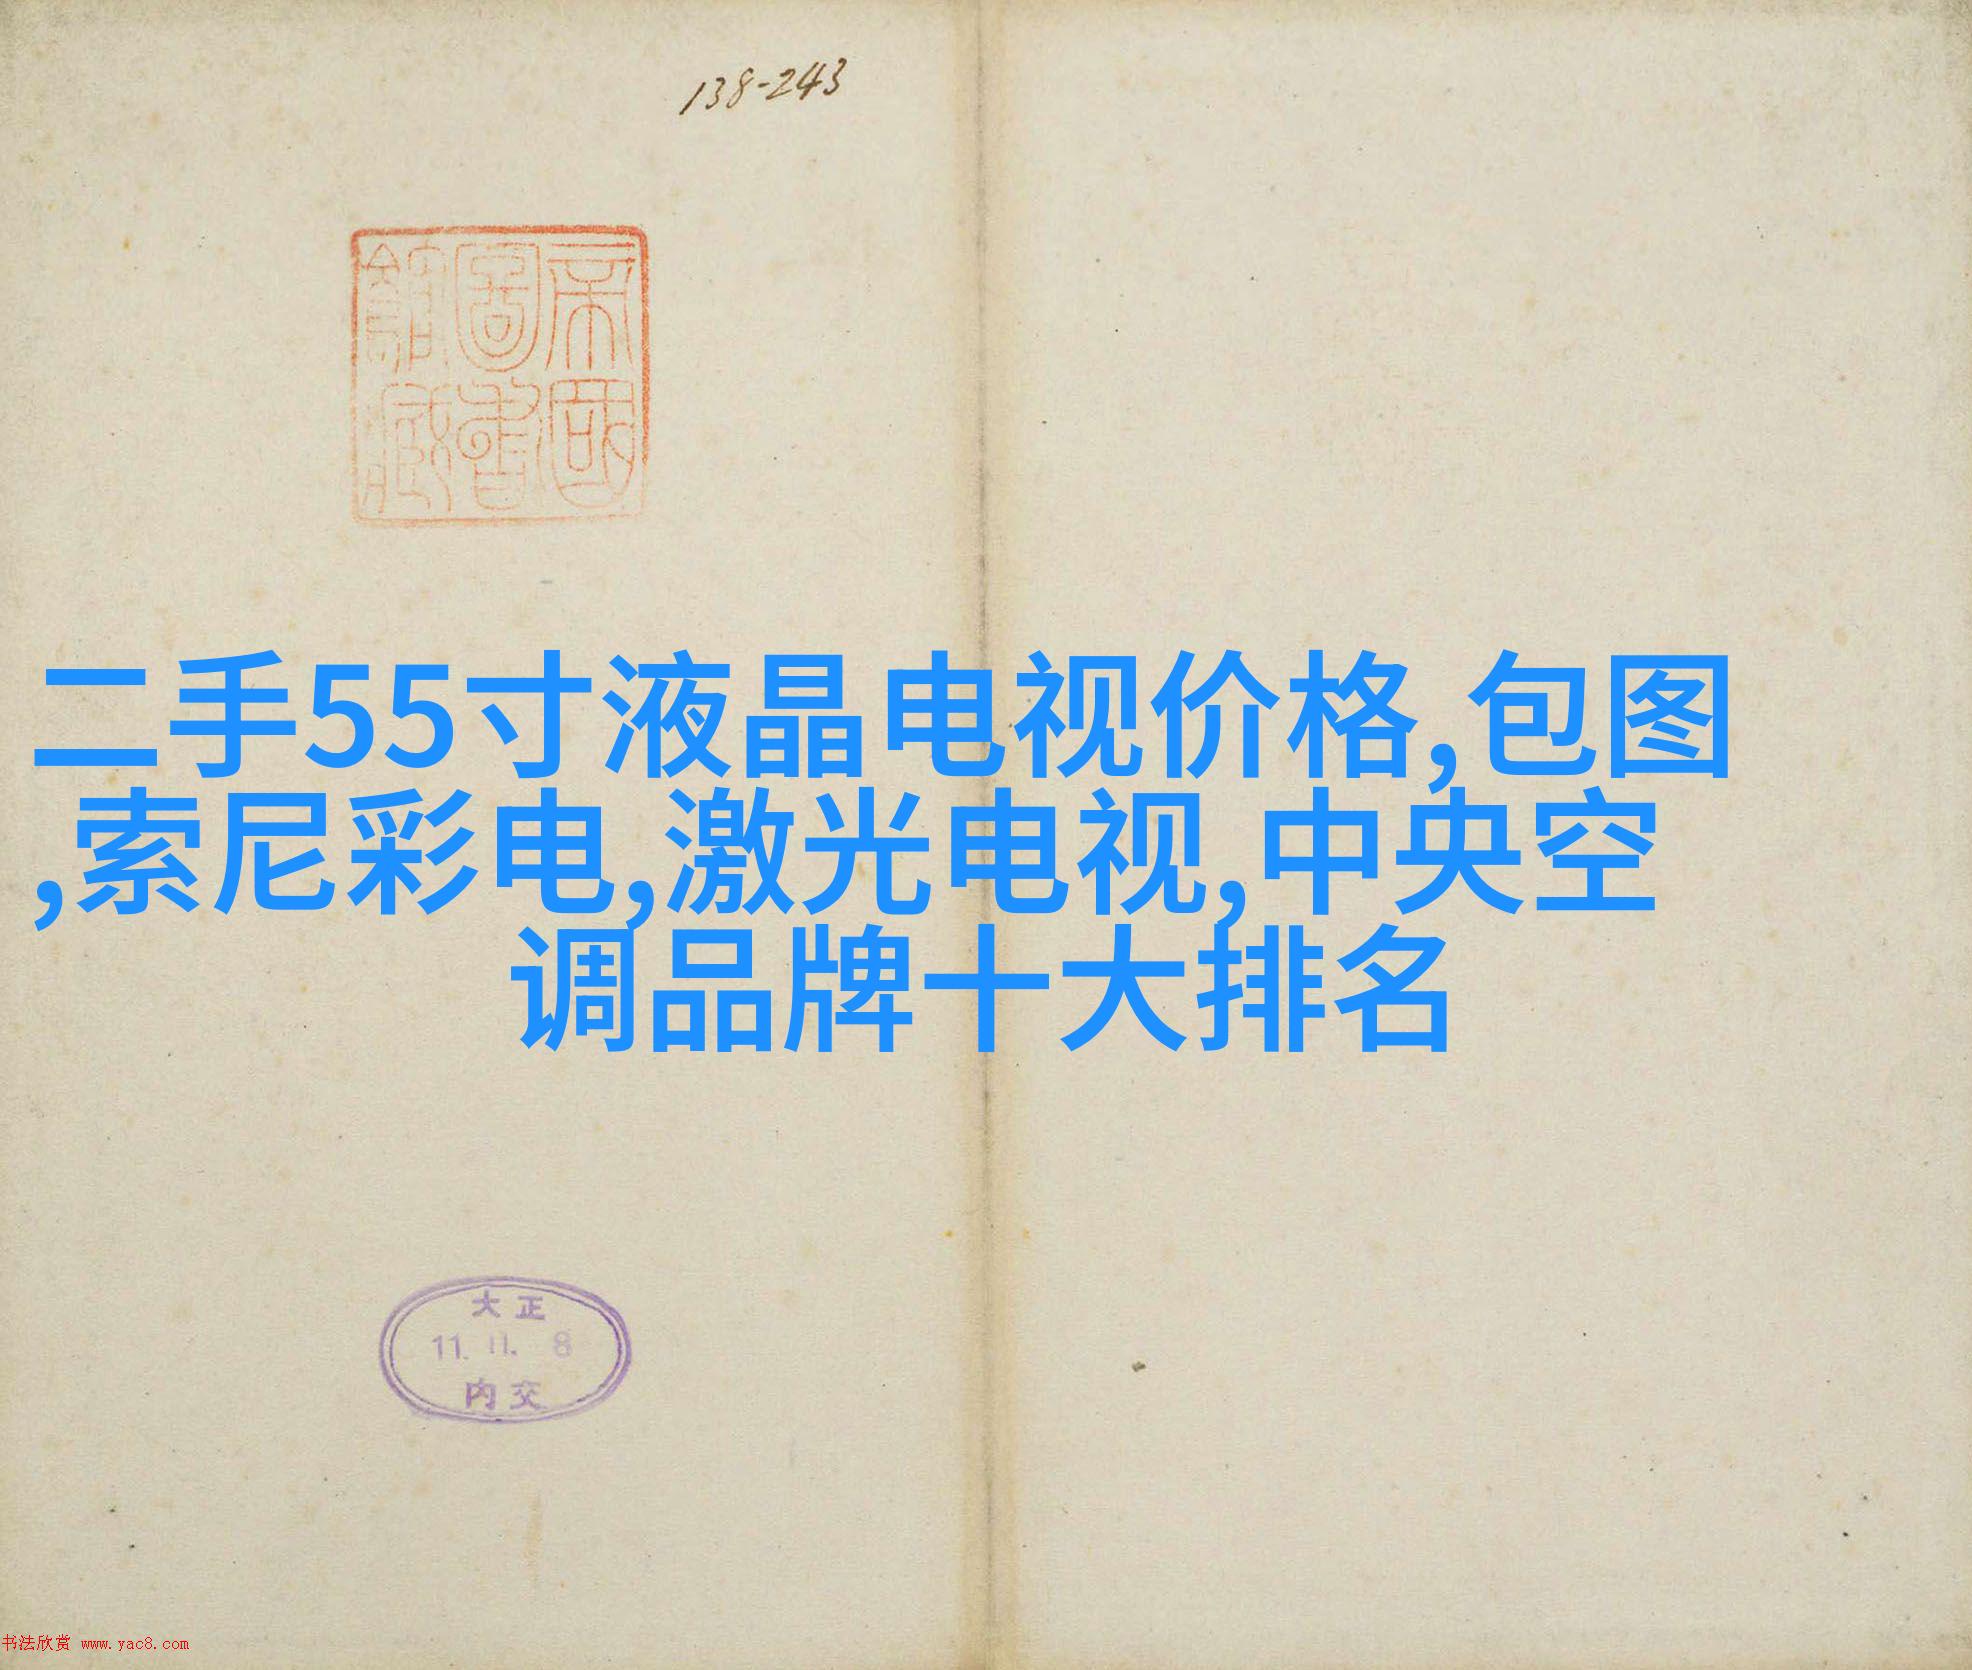 138-243
帝國
圖書
館藏
二手55寸液晶电视价格,包图
,索尼彩电,激光电视,中央空
调品牌十大排名
大正
11. 11. 8
内交
书法欣赏 www.yac8.com